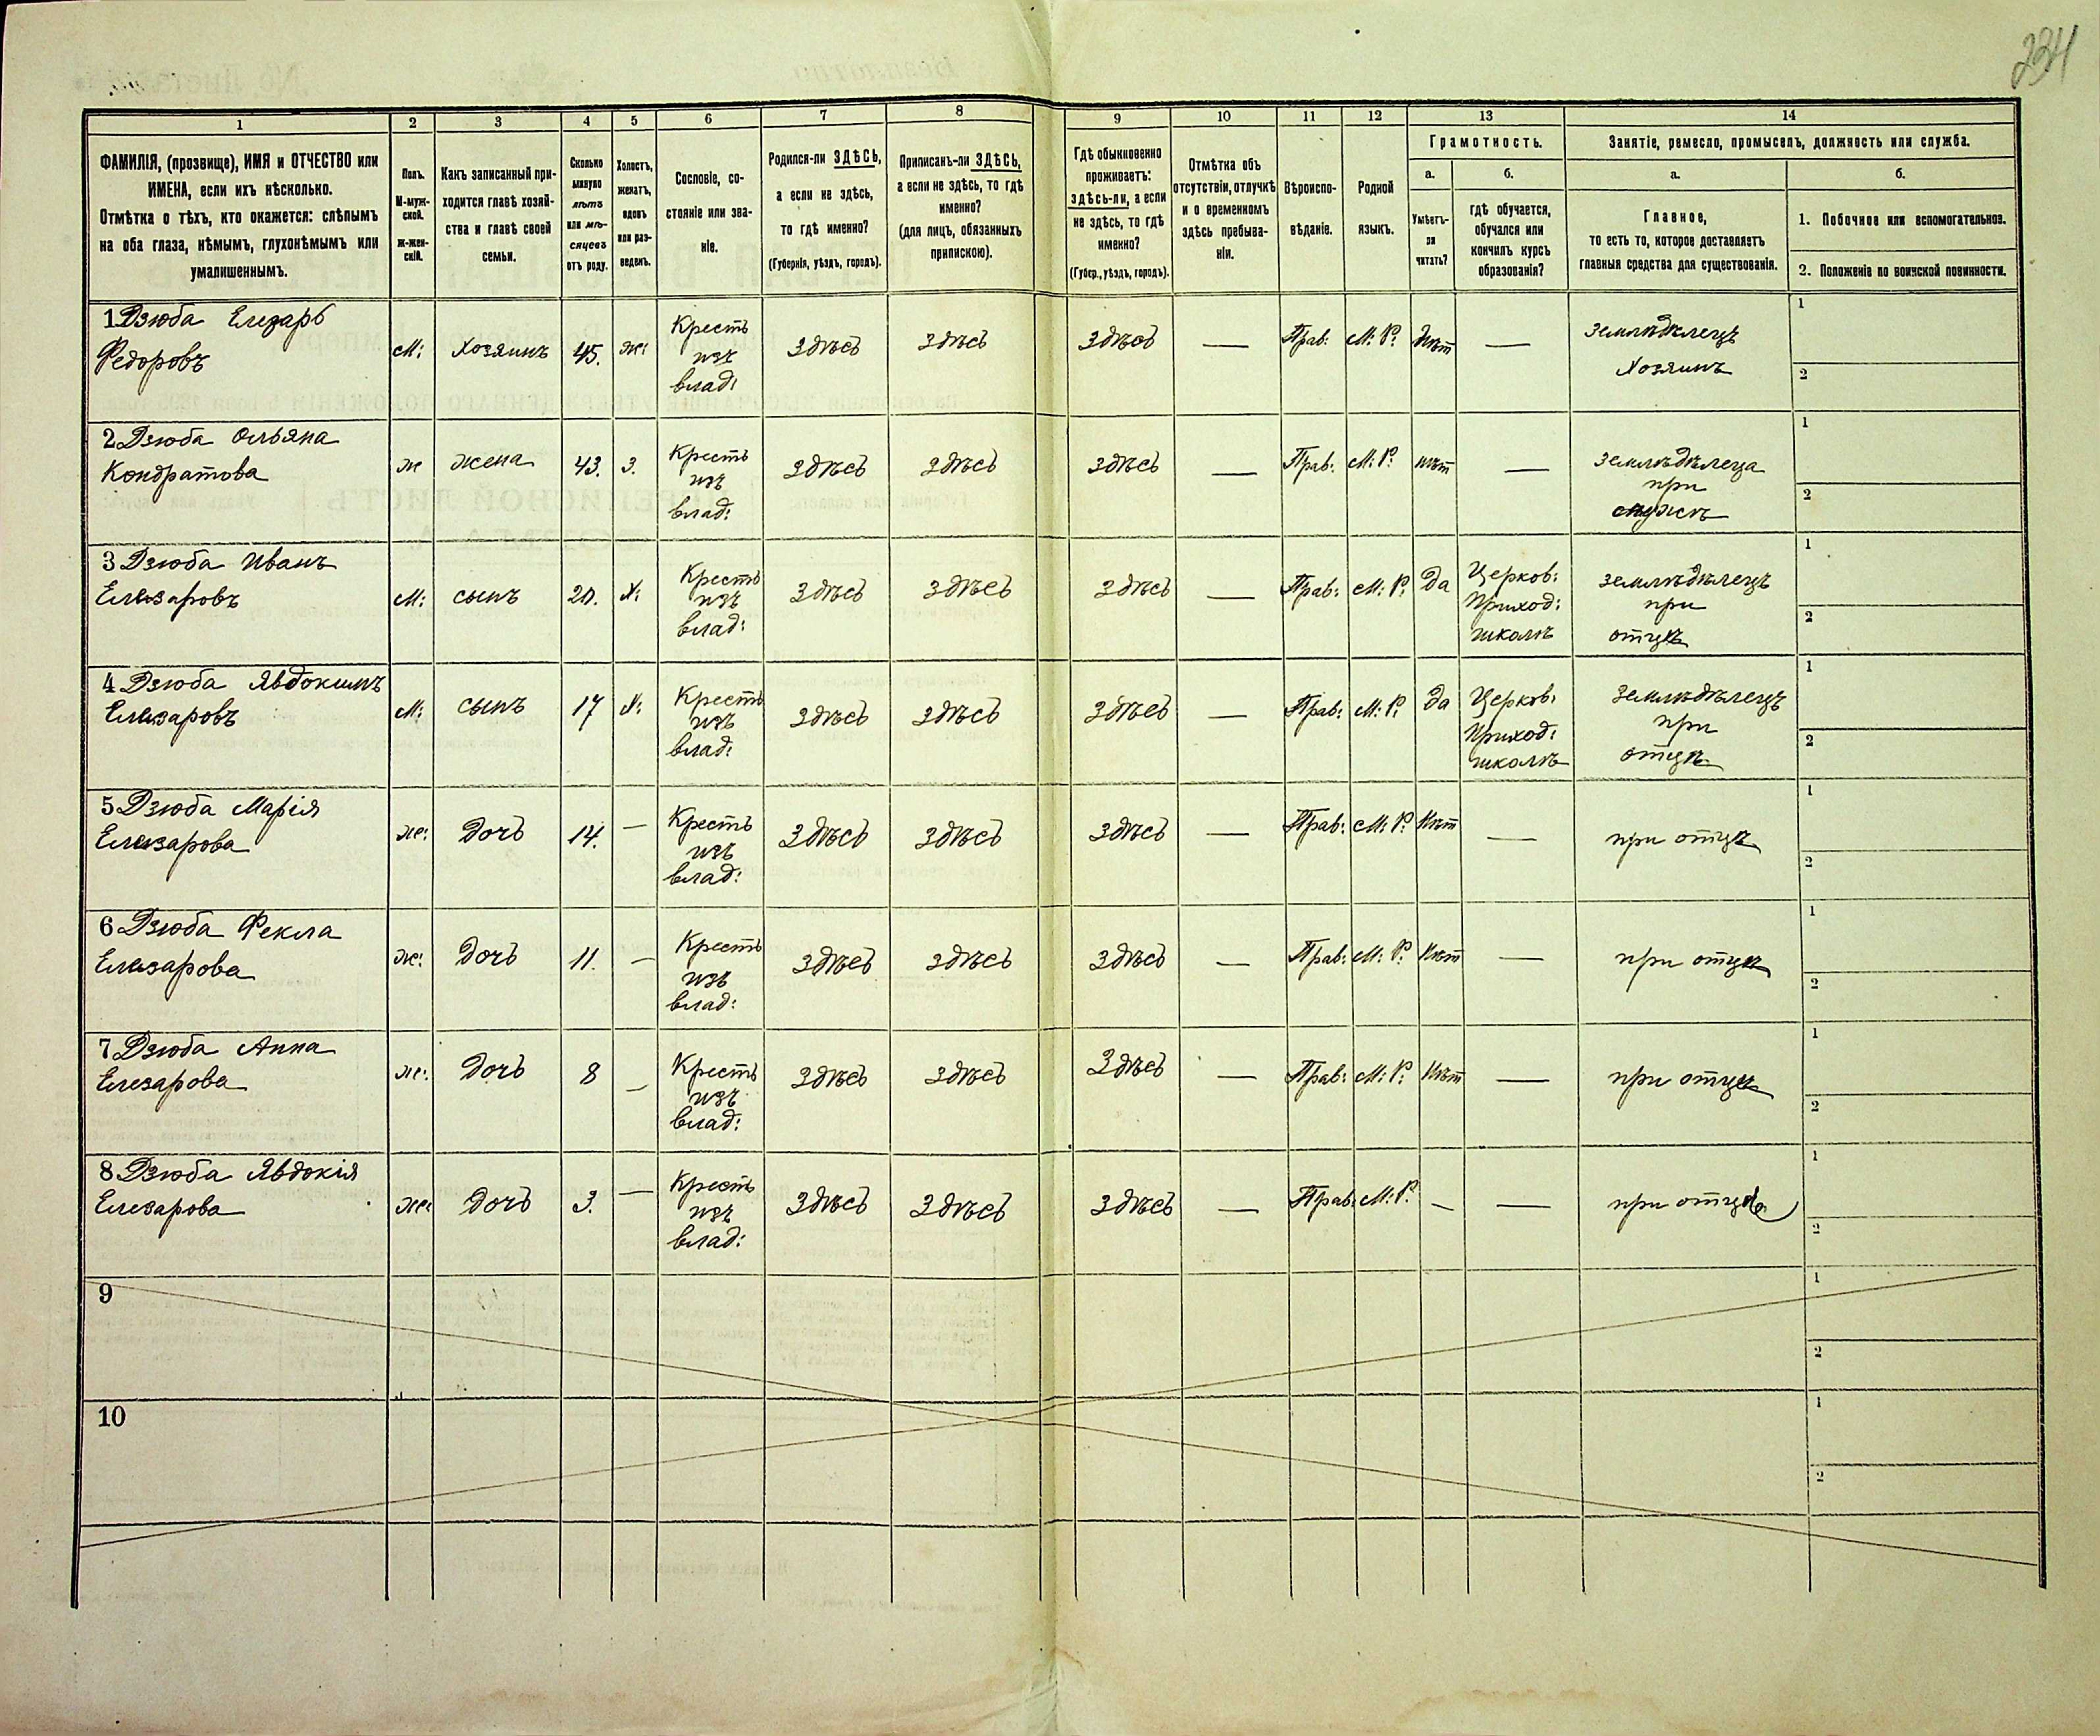 234
1
2
3
4
5
6
7
8
9
10
11
12
13
14
ФАМИЛІЯ, (прозвище), ИМЯ и ОТЧЕСТВО или
ИМЕНА, если ихъ нѣсколько.
Отмѣтка о тѣхъ, кто окажется: слѣпымъ
на оба глаза, нѣмымъ, глухонѣмымъ или
умалишеннымъ.
Полъ.
М-муж-
ской.
ж-жен-
скій.
Какъ записанный при-
ходится главѣ хозяй-
ства и главѣ своей
семьи.
Сколько
минуло
лѣтъ
или мѣ-
сяцевъ
отъ роду.
Холостъ,
женатъ,
вдовъ
или раз-
веденъ.
Сословіе, со-
стояніе или зва-
ніе.
Родился-ли ЗДѢСЬ,
а если не здѣсь,
то гдѣ именно?
(Губернія, уѣздъ, городъ).
Приписанъ-ли ЗДѢСЬ,
а если не здѣсь, то гдѣ
именно?
(для лицъ, обязанныхъ
припискою).
Гдѣ обыкновенно
проживаетъ:
здѣсь-ли, а если
не здѣсь, то гдѣ
именно?
(Губер., уѣздъ, городъ).
Отмѣтка объ
отсутствіи, отлучкѣ
и о временномъ
здѣсь пребыва-
ніи.
Вѣроиспо-
вѣданіе.
Родной
языкъ.
Грамотность.
а.
Умѣетъ-
ли
читать?
б.
гдѣ обучается,
обучался или
кончилъ курсъ
образованія?
Занятіе, ремесло, промыселъ, должность или служба.
а.
Главное,
то есть то, которое доставляетъ
главныя средства для существованія.
б.
1. Побочное или вспомогательное.
2. Положеніе по воинской повинности.
1 Дзюба Елизаръ
Федоровъ
м:
Хозяинъ
45.
же:
Кресть
изъ
влад:
здѣсь
здѣсь
здѣсь
—
Прав:
М: Р:
Нѣт
—
земледѣлецъ
Хозяинъ
1
2
2 Дзюба Ольяна
Кондратова
ж
жена
43.
З.
Кресть
изъ
влад:
здѣсь
здѣсь
здѣсь
—
Прав:
М: Р:
нѣт
—
земледѣлеца
при
мужѣ
1
2
3 Дзюба Иванъ
Елизаровъ
м:
сынъ
20.
Х:
Кресть
изъ
влад:
здѣсь
здѣсь
здѣсь
—
Прав:
М: Р:
Да
Церков:
Приход:
школѣ
земледѣлецъ
при
отцѣ
1
2
4 Дзюба Явдокимъ
Елизаровъ
м:
сынъ
17
Х:
Кресть
изъ
влад:
здѣсь
здѣсь
здѣсь
—
Прав:
М: Р:
Да
Церков:
Приход:
школѣ
земледѣлецъ
при
отцѣ
1
2
5 Дзюба Марія
Елизарова
же:
дочь
14.
—
Кресть
изъ
влад:
Здѣсь
здѣсь
здѣсь
—
Прав:
М: Р:
Нѣт
—
при отцѣ
1
2
6 Дзюба Фекла
Елизарова
же:
дочь
11.
—
Кресть
изъ
влад:
здѣсь
здѣсь
здѣсь
—
Прав:
М: Р:
Нѣт
—
при отцѣ
1
2
7 Дзюба Анна
Елезарова
же:
дочь
8
—
Кресть
изъ
влад:
здѣсь
здѣсь
здѣсь
—
Прав:
М: Р:
Нѣт
—
при отцѣ
1
2
8 Дзюба Явдокія
Елезарова
же:
дочь
3.
—
Кресть
изъ
влад:
здѣсь
здѣсь
здѣсь
—
Прав:
М: Р:
—
—
при отцѣ
1
2
9
1
2
10
1
2